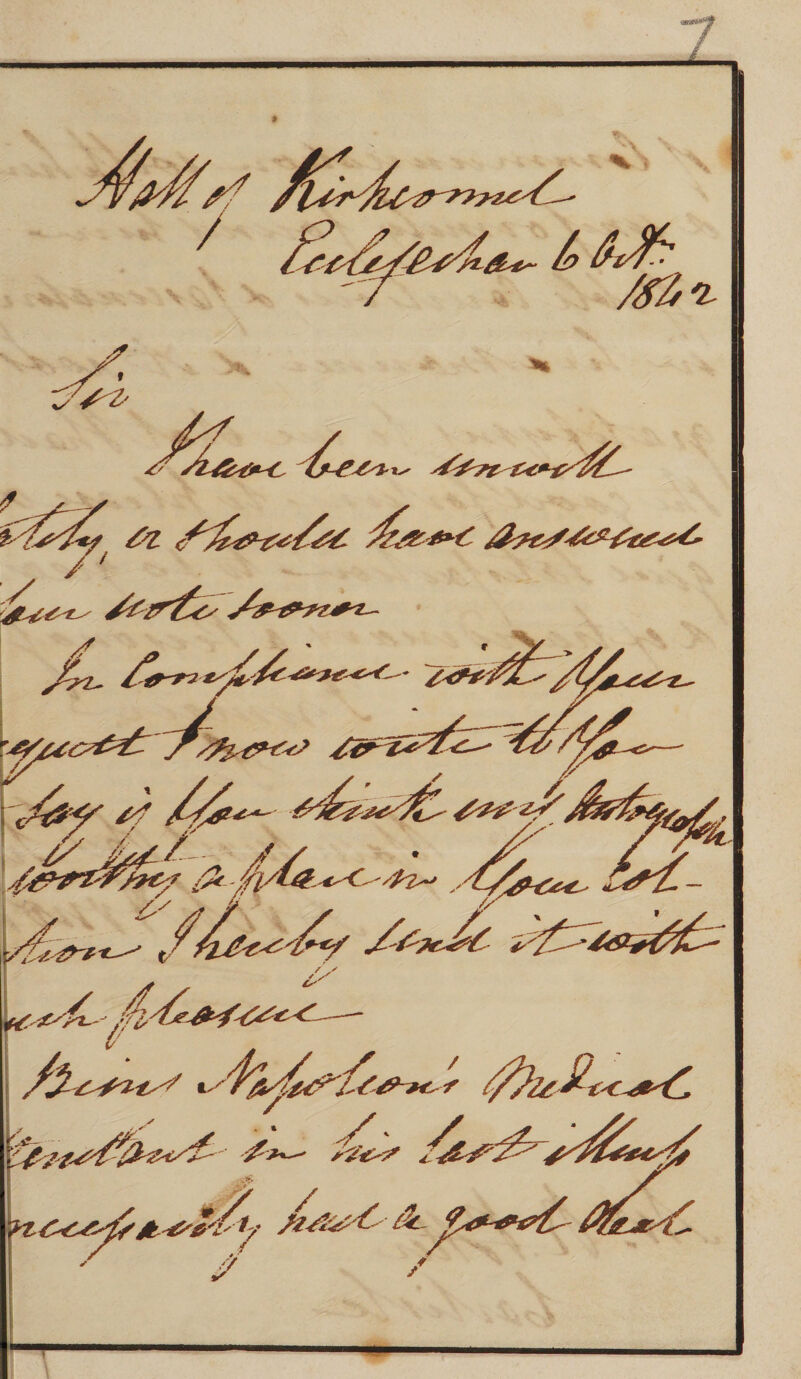 7
Hall of Kirkconnel
Ecclefechan 6 Octr.
1842
Sir
I have been unwell
ately, or should have answered
Your note sooner
In Compliance with Your
equest I now write to You
say if You think my Autograph
worthy a place in Your Col-
tion I hereby send it with
uch pleasure
Being Napoleon's Medical
tendant in his last illness
necessarily had a good deal